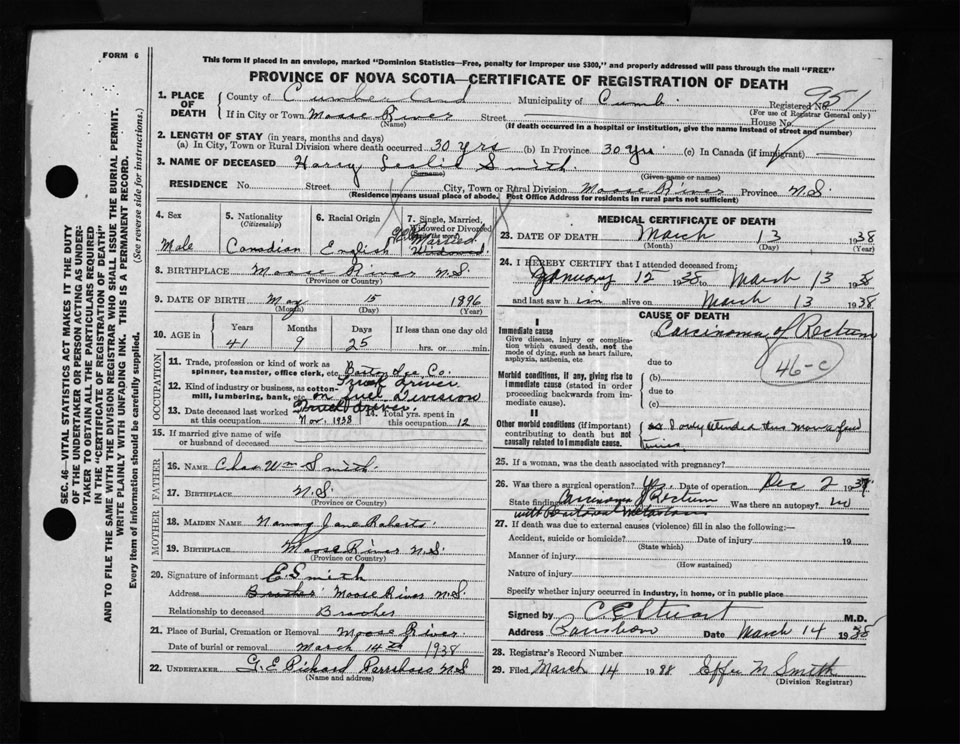 FORM 6
This form if placed in an envelope, marked "Dominion Statistics—Free, penalty for improper use $300," and properly addressed will pass through the mail "FREE"
PROVINCE OF NOVA SCOTIA—CERTIFICATE OF REGISTRATION OF DEATH
SEC. 46—VITAL STATISTICS ACT MAKES IT THE DUTY
OF THE UNDERTAKER OR PERSON ACTING AS UNDER-
TAKER TO OBTAIN ALL THE PARTICULARS REQUIRED
IN THE "CERTIFICATE OF REGISTRATION OF DEATH"
AND TO FILE THE SAME WITH THE DIVISION REGISTRAR WHO SHALL ISSUE THE BURIAL PERMIT.
WRITE PLAINLY WITH UNFADING INK. THIS IS A PERMANENT RECORD.
Every item of information should be carefully supplied.
(See reverse side for instructions.)
1. PLACE OF DEATH
County of Cumberland Municipality of Cumb. Registered No. 951
(For use of Registrar General only)
If in City or Town Moose River Street House No.
(Name) (If death occurred in a hospital or institution, give the name instead of street and number)
2. LENGTH OF STAY (in years, months and days)
(a) In City, Town or Rural Division where death occurred 30 yrs (b) In Province 30 yrs. (c) In Canada (if immigrant)
3. NAME OF DECEASED Harry Leslie Smith.
(Surname) (Given name or names)
RESIDENCE No. Street City, Town or Rural Division Moose River Province N.S.
(Residence means usual place of abode. Post Office Address for residents in rural parts not sufficient)
4. Sex Male
5. Nationality (Citizenship) Canadian
6. Racial Origin English
7. Single, Married, Widowed or Divorced
Married
Widowed
8. BIRTHPLACE Moose River N.S.
(Province or Country)
9. DATE OF BIRTH May 15 1896
(Month) (Day) (Year)
10. AGE in Years Months Days If less than one day old
41 9 25 hrs. or min.
OCCUPATION
11. Trade, profession or kind of work as spinner, teamster, office clerk, etc. Co.
12. Kind of industry or business, as cotton-mill, lumbering, bank, etc. Truck driver
on fuel Division
13. Date deceased last worked at this occupation Truck driver.
Nov. 1938
14. Total yrs. spent in this occupation 12
15. If married give name of wife or husband of deceased
FATHER
16. NAME Chas Wm Smith.
17. BIRTHPLACE N.S.
(Province or Country)
MOTHER
18. MAIDEN NAME Nancy Jane Roberts.
19. BIRTHPLACE Moose River N.S.
(Province or Country)
20. Signature of informant E. Smith
Address Brother Moose River N.S.
Relationship to deceased Brother
21. Place of Burial, Cremation or Removal Moose River.
Date of burial or removal March 14th 1938
22. UNDERTAKER G. E. Pickard Parrsboro N.S
(Name and address)
MEDICAL CERTIFICATE OF DEATH
23. DATE OF DEATH March 13 1938
(Month) (Day) (Year)
24. I HEREBY CERTIFY that I attended deceased from:
January 12 1938 to March 13 1938
and last saw him alive on March 13 1938
CAUSE OF DEATH
I
Immediate cause
Give disease, injury or complication which caused death, not the mode of dying, such as heart failure, asphyxia, asthenia, etc.
(a) Carcinoma of Rectum
46-c
due to
Morbid conditions, if any, giving rise to immediate cause (stated in order proceeding backwards from immediate cause).
(b)
due to
(c)
II
Other morbid conditions (if important) contributing to death but not causally related to immediate cause.
I only attended this man a few
times
25. If a woman, was the death associated with pregnancy?
26. Was there a surgical operation? Yes Date of operation Dec 2 1937
State finding Carcinoma of Rectum Was there an autopsy? no
with
27. If death was due to external causes (violence) fill in also the following:—
Accident, suicide or homicide? Date of injury 19
(State which)
Manner of injury
(How sustained)
Nature of injury
Specify whether injury occurred in industry, in home, or in public place
Signed by C E Stuart M.D.
Address Parrsboro Date March 14 1938
28. Registrar's Record Number
29. Filed March 14 1938 Effie M Smith
(Division Registrar)